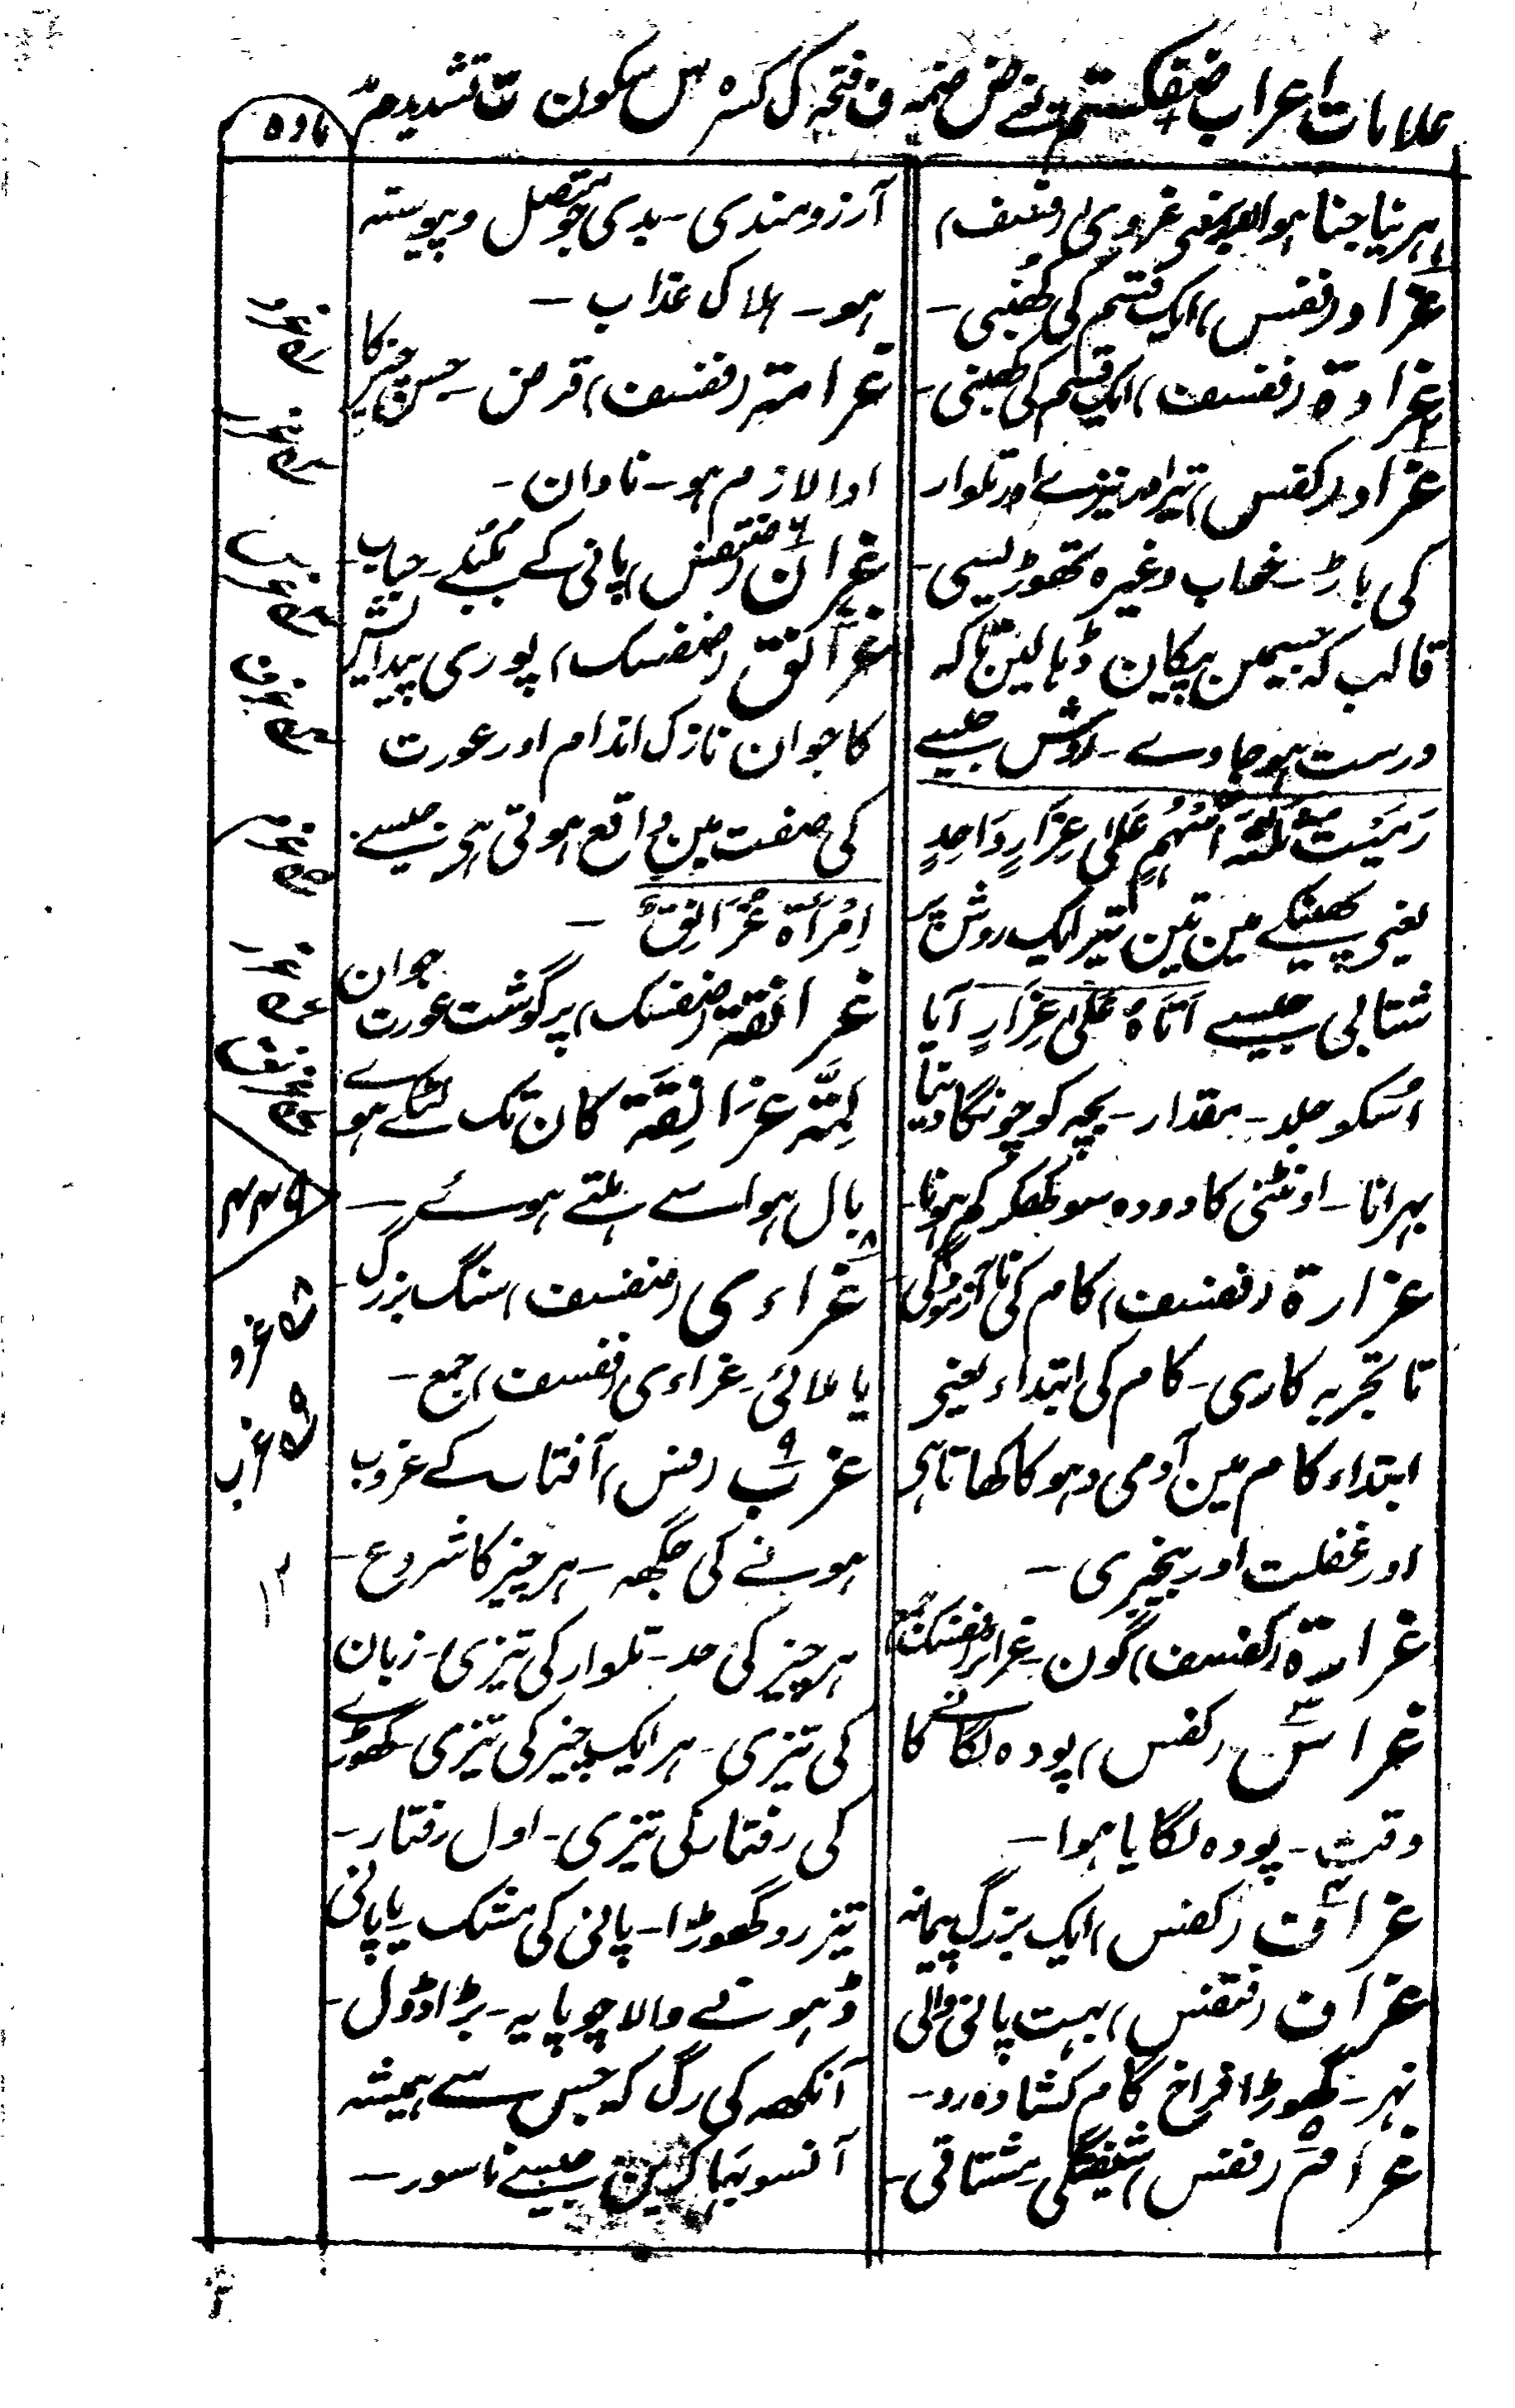 علامات اعراب ضفکستم یعنے ض ضمہ ف فتحہ ک کسرہ س سکون ت تشدید م مد
مادہ
ہر نیا جنا ہوا اور بمعنی غروی (فتسف)
غراد (فتفس) ایک قسم کی کھُنبی -
غرادة (فتفسف) ایک قسم کی کھنبی -
غرار (کفتس) تیر اور نیزے اور تلوار
کی باڑ - خواب وغیرہ تھوڑیسی -
قالب کہ جسمین پیکان ڈہالین تاکہ
درست ہو جاوے - روش جیسے
رَمَیْتُ ثَلٰثَةَ اَسْهُمٍ عَلٰی غِرَارٍ وَاحِدٍ
یعنی پھینکے مین تین تیر ایک روش پر
شتابی جیسے اَتَاہُ عَلٰی غِرَارٍ آیا
اسکو جلد - مقدار - بچہ کو چونگا دینا
بہرانا - اونٹنی کا دودہ سوکھکر کم ہونا -
غرارة (فتفسف) کام کی نا آزمودگی
نا تجربہ کاری - کام کی ابتداء یعنی
ابتداء کام مین آدمی دہوکا کھاتا ہی
اور غفلت اور بیخبری -
غرارة (کفسف) گون - غرائر جمع
غراس (کفس) پودہ لگانے کا
وقت - پودہ لگایا ہوا -
غراف (کفس) ایک بزرگ پیمانہ
غراف (فتفس) بہت پانی والی
نہر - گھوڑا فراخ گام کشادہ رو -
غرام (فتفس) شیفتگی مشتاقی -
آرزومندی - بدی جو متصل و پیوستہ
ہو - ہلاکی عذاب -
غرامة (فتفسف) قرض - جس چیز کا
ادا لازم ہو - تاوان -
غران پانی کے بُلبلے - حباب -
غرانق (ضفسک) پوری پیدایش
کا جوان نازک اندام اور عورت
کی صفت مین واقع ہوتی ہی جیسے
اِمْرَأَةٌ غُرَانِقٌ -
غرانقة (ضفسک) پر گوشت جوان عورت
لِمَّة غرَانِقَة کان تک لٹکے ہوے
بال ہوا سے ہلتے ہوئے -
غراءى سنگ بزرگ
یا ملائی - غراءى (فتفسف) جمع -
غرب (فس) آفتاب کے غروب
ہونے کی جگھہ - ہر چیز کا شروع -
ہر چیز کی حد - تلوار کی تیزی - زبان
کی تیزی - ہر ایک چیز کی تیزی گھوڑے
کی رفتار کی تیزی - اول رفتار -
تیز رو گھوڑا - پانی کی مشک یا پانی
ڈہونے والا چوپایہ - بڑا ڈول -
آنکھہ کی رگ کہ جس سے ہمیشہ
آنسو بہا کرین جیسے ناسور -
غرد
غرر
غرس
غرف
غرم
غرن
غرنق
غرو
غرب
۱۲